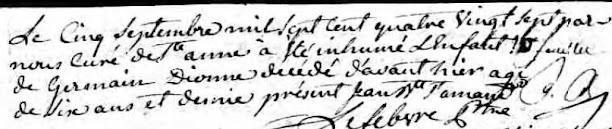 Le Cinq Septembre mil Sept Cent quatre Vingt Sept par
nous Curé de Ste anne a été inhumé L'enfant
de Germain Dionne décédé d'avant hier agé
de six ans et demie présent Jean
Lefebvre Ptre